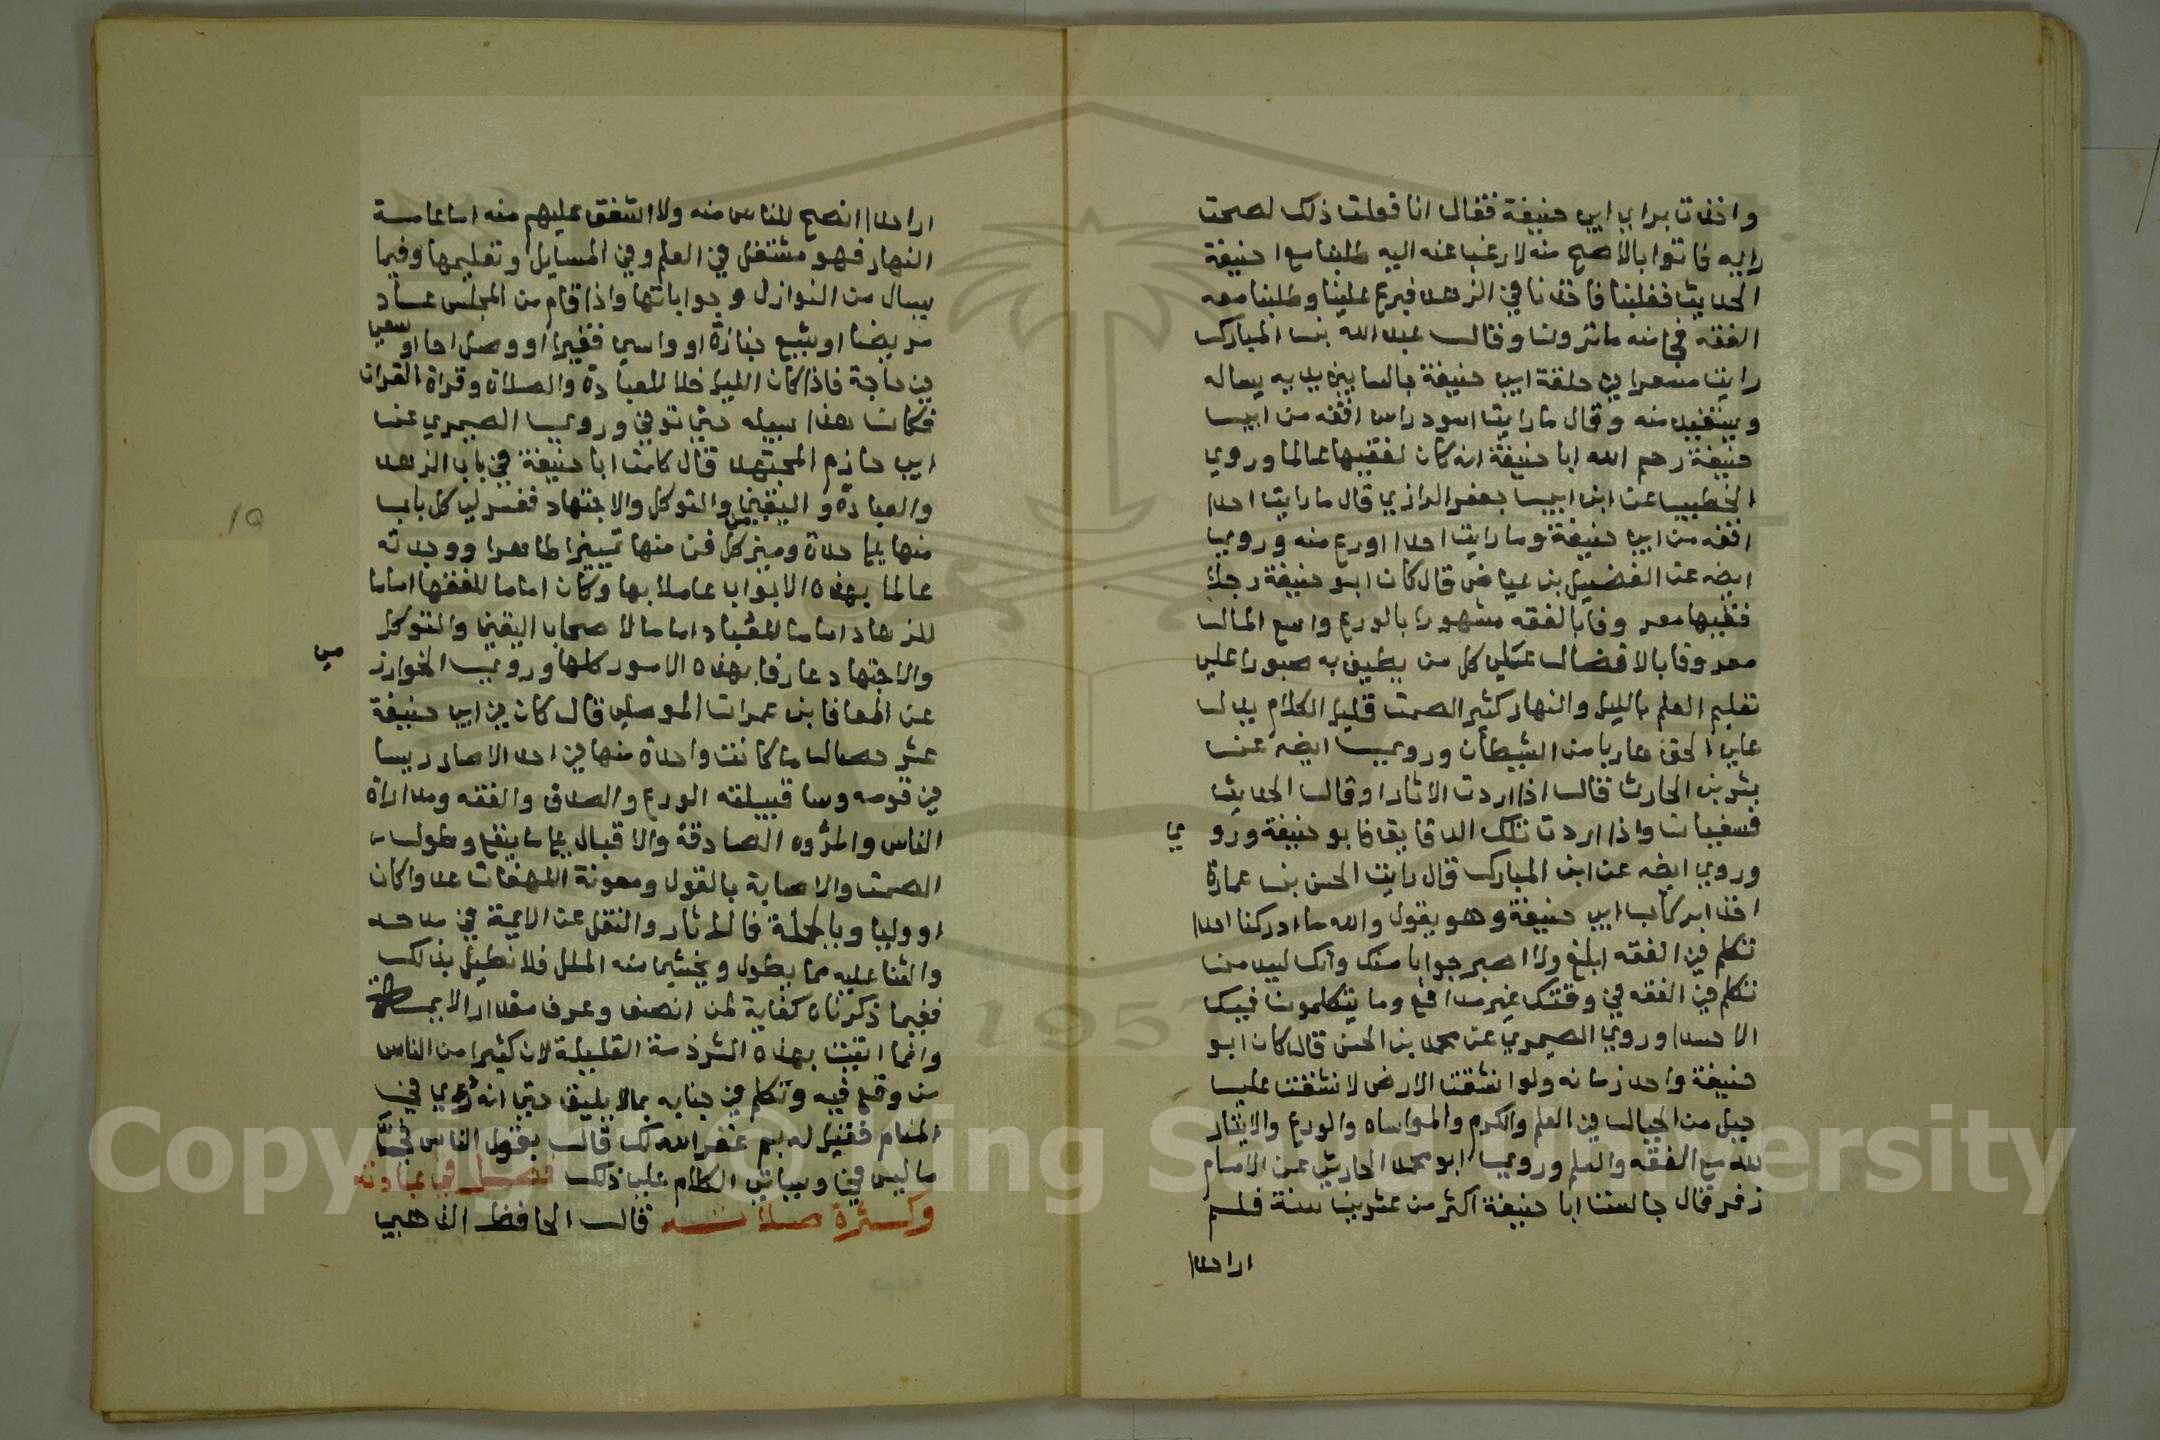 واخذت براي ابي حنيفة فقال انا قولت ذلك لصحت
رايه فاتوا بالاصح منه لا رغبا عنه اليه طلبنا مع ا حنيفة
الحديث فغلبنا فاخذنا في الزهد فبرع علينا وطلبنا معه
الفقه فجا منه ما ترون وقال عبد الله بن المبارك
رايت مسعرا في حلقة ابي حنيفة جالسا بين يديه يساله
ويستفيد منه وقال ما رايت اسود راس افقه من ابي
حنيفة رحم الله ابا حنيفة انه كان لفقيها عالما وروي
الخطيب عن ابن ابي جعفر الرازي قال ما رايت احدا
افقه من ابي حنيفة وما رايت احدا اورع منه وروي
ايضه عن الفضيل بن عياض قال كان ابو حنيفة رجلا
فقيها معروفا بالفقه مشهورا بالورع واسع المال
معروفا بالافضال علي كل من يطيف به صبورا علي
تعليم العلم بالليل والنهار كثير الصمت قليل الكلام يدل
علي الحق هاربا من الشيطان وروي ايضه عن
بشر بن الحارث قال اذا اردت الاثار او قال الحديث
فسفيان واذا اردت تلك الدقايق فابو حنيفة ورو
ي
وروي ايضه عن ابن المبارك قال رايت الحسن بن عمارة
اخذا بركاب ابي حنيفة وهو يقول والله ما ادركنا احدا
تكلم في الفقه ابلغ ولا اصبر جوابا منك وانك لسيد من
تكلم في الفقه في وقتك غير مدافع وما يتكلمون فيك
الا حسدا وروي الصيمري عن محمد بن الحسن قال كان ابو
حنيفة واحد زمانه ولو انشقت الارض لانشقت عليه
جبل من الجبال في العلم والكرم والمواساه والورع والايثار
لله مع الفقه والعلم وروي ابو محمد الحارثي عن الامام
زفر قال جالست ابا حنيفة اكثر من عشرين سنة فلم
ارا حدا
ارا حدا انصح للناس منه ولا اشفق عليهم منه اما عامة
النهار فهو مشتغل في العلم وفي المسايل وتعليمها وفيما
يسال من النوازل وجواباتها واذا قام من المجلس عاد
مريضا او شيع جنازة او واسي فقيرا او وصل اخا او سعي
في حاجة فاذا كان الليل خلا للعبادة والصلاة وقراة القران
فكان هذا سبيله حتي توفي وروي الصيمري عن
ابي حازم المجتهد قال كلمت ابا حنيفة في باب الزهد
والعبادة واليقين والتوكل والاجتهاد ففسر لي كل باب
منها علي حدة وميز كل فن منها تمييزا ظاهرا ووجدته
عالما بهذه الابواب عاملا بها وكان اماما للفقها اماما
للزهاد اماما للعباد اماما لاصحاب اليقين والتوكل
والاجتهاد عارفا بهذه الامور كلها وروي الخوارز
مي
عن المعافا بن عمران الموصلي قال كان في ابي حنيفة
عشر خصال ما كانت واحدة منها في احد الا صار رييسا
في قومه وسا قبيلته الورع والصدق والفقه ومداراة
الناس والمروه الصادقة والاقبال علي ما ينفع وطول
الصمت والاصابة بالقول ومعونة اللهفان عدوا كان
او وليا وبالجملة فالاثار والنقل عن الايمة في مدحه
والثنا عليه مما يطول ويخشي منه الملل فلا نطيل بذلك
ففيما ذكرناه كفاية لمن انصف وعرف مقدار الايمة
وانما اتيت بهذه الشرذمة القليلة لان كثيرا من الناس
من وقع فيه وتكلم في جنابه بما لا يليق حتي انه رءي في
المنام فقيل له بم غفر الله لك قال بقول الناس في
ما ليس في وسياتي الكلام علي ذلك فصل في عبادته
وكثرة صلاته قال الحافظ الذهبي
10
Copyright © King Saud University
1957